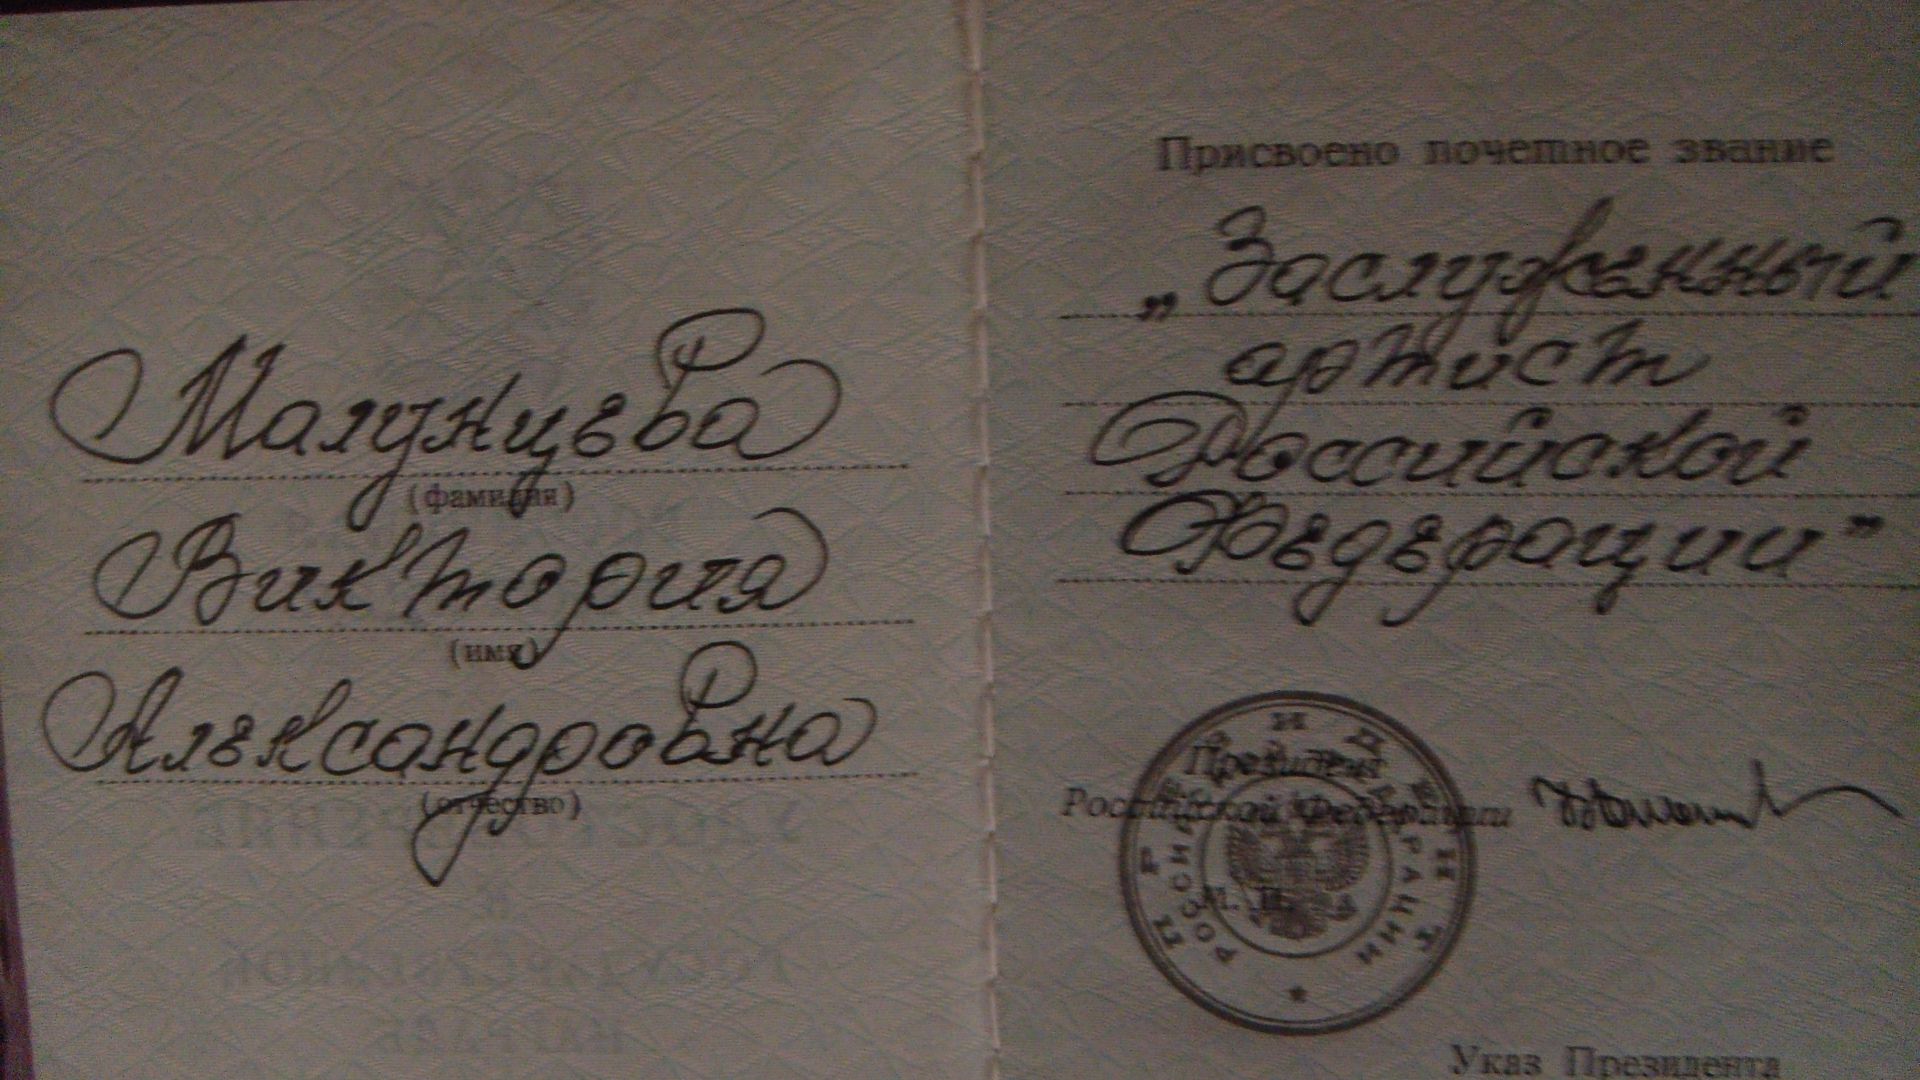 Малунцева
(фамилия)
Виктория
(имя)
Александровна
(отчество)
Присвоено почетное звание
„Заслуженный
артист
Российской
Федерации"
Президент
Российской Федерации
М. П.
ПРЕЗИДЕНТ
РОССИЙСКОЙ ФЕДЕРАЦИИ
Указ Президента